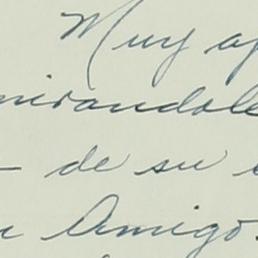 Muy
mirandole
- de su
Amigo.